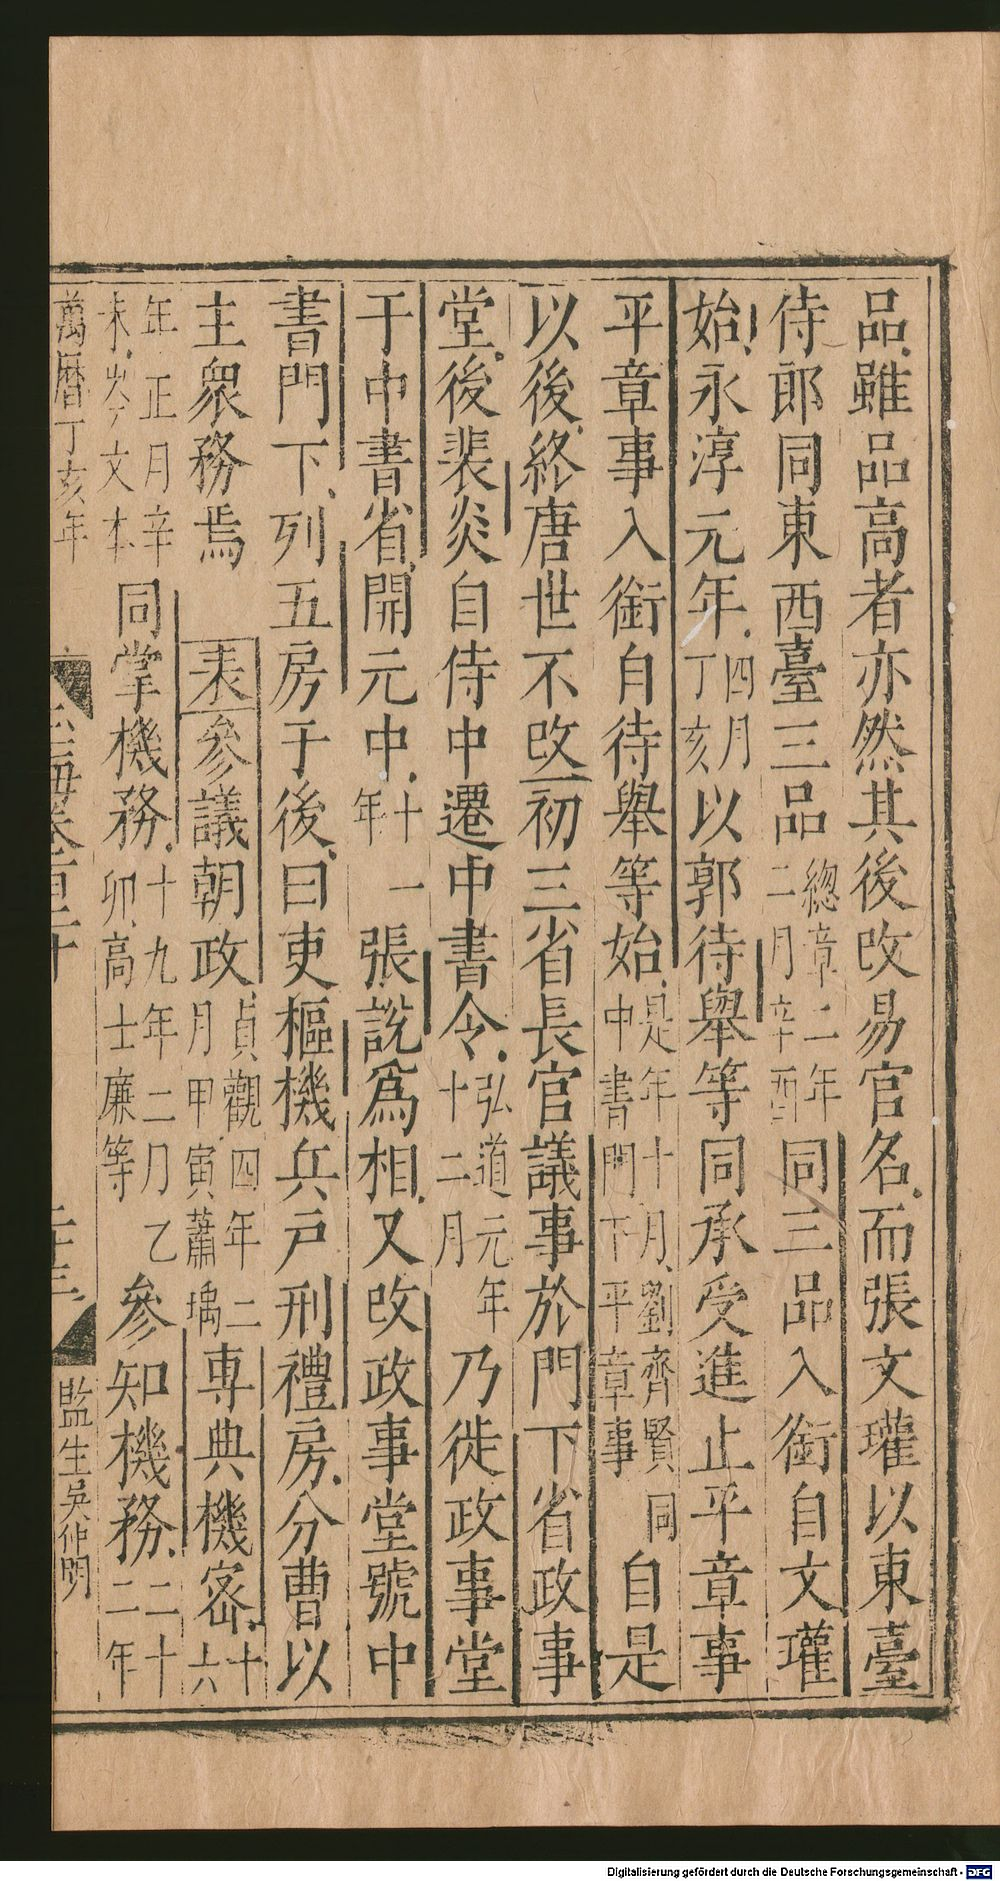 品雖品高者亦然其後改易官名而張文瓘以東臺
侍郎同東西臺三品總章二年二月辛酉同三品入銜自文瓘
始永淳元年四月丁亥以郭待舉等同承受進止平章事
平章事入銜自待舉等始是年十月劉齊賢同中書門下平章事自是
以後終唐世不改初三省長官議事於門下省政事
堂後裴炎自侍中遷中書令弘道元年十二月乃徙政事堂
于中書省開元中十一年張說為相又改政事堂號中
書門下列五房于後曰吏樞機兵戶刑禮房分曹以
主衆務焉 表參議朝政貞觀四年二月甲寅蕭瑀專典機密十六
年正月辛未岑文本同掌機務十九年二月乙卯高士廉等參知機務二十二年
萬曆丁亥年 監生吳仲明
Digitalisierung gefördert durch die Deutsche Forschungsgemeinschaft - DFG